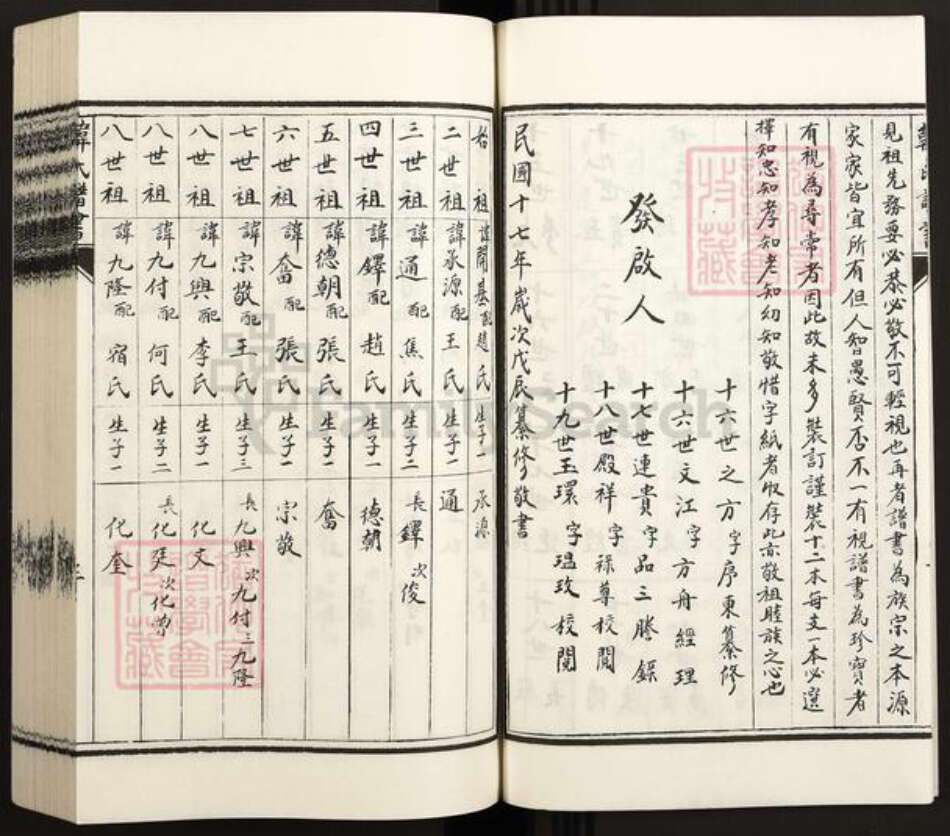 見祖先務要必恭必敬不可輕視也再者譜書為族宗之本源
家家皆宜所有但人智愚賢否不一有視譜書為珍寶者
有視為尋常者因此故未多裝訂謹裝十二本每支一本必選
擇知忠知孝知老知幼知敬惜字紙者收存此亦敬祖睦族之心也
發啟人
十六世之方字序東纂修
十六世文江字方舟經理
十七世連貴字品三謄錄
十八世殿祥字祿尊校閱
十九世玉環字瑥玫校閱
民國十七年歲次戊辰纂修敬書
始祖 諱開基配趙氏 生子一 承源
二世祖 諱承源配王氏 生子一 通
三世祖 諱通配焦氏 生子二 長鐸次俊
四世祖 諱鐸配趙氏 生子一 德朝
五世祖 諱德朝配張氏 生子一 奮
六世祖 諱奮配張氏 生子一 宗敬
七世祖 諱宗敬配王氏 生子三 長九興次九付三九隆
八世祖 諱九興配李氏 生子一 化文
八世祖 諱九付配何氏 生子二 長化廷次化
八世祖 諱九隆配宿氏 生子一 化奎
韓氏譜書
FamilySearch